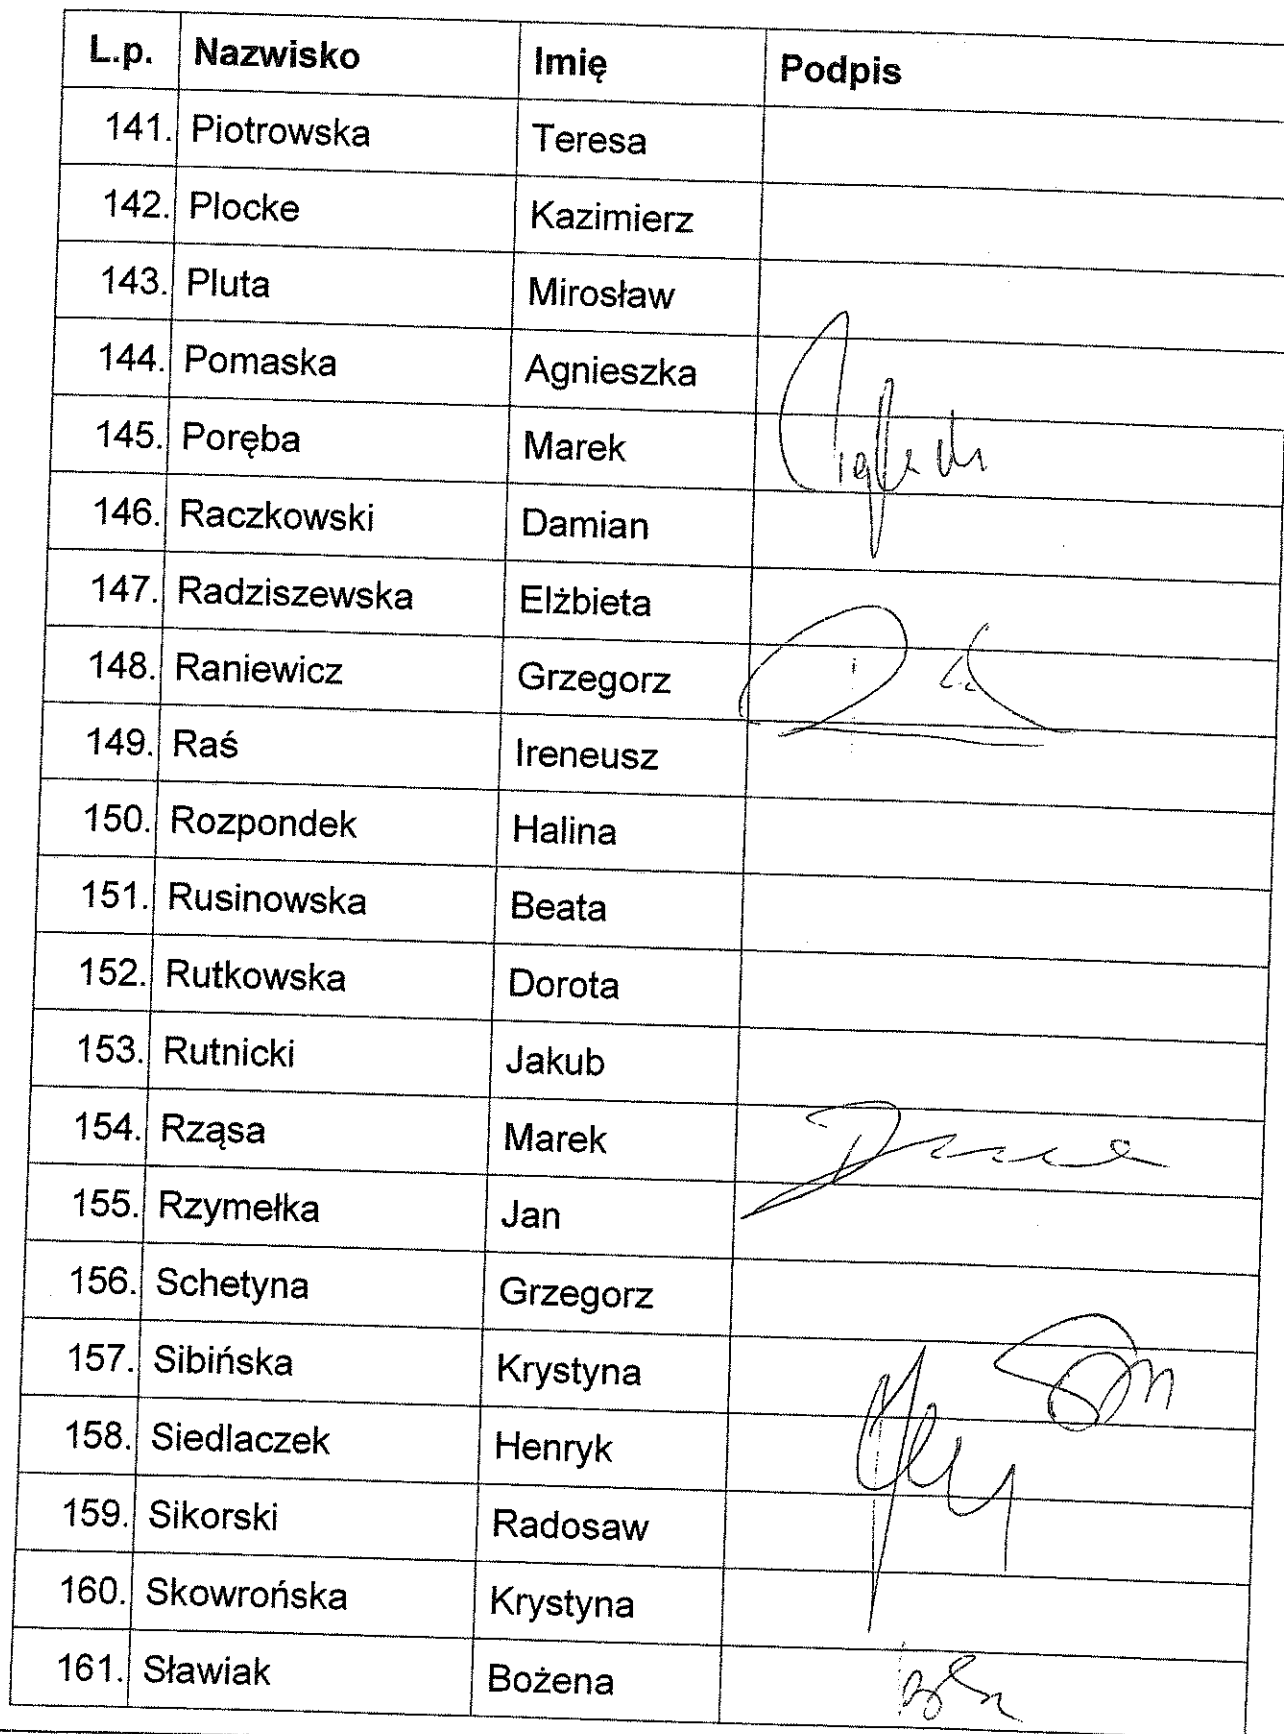 L.p. Nazwisko Imię Podpis
141. Piotrowska Teresa
142. Plocke Kazimierz
143. Pluta Mirosław
144. Pomaska Agnieszka
145. Poręba Marek
146. Raczkowski Damian
147. Radziszewska Elżbieta
148. Raniewicz Grzegorz
149. Raś Ireneusz
150. Rozpondek Halina
151. Rusinowska Beata
152. Rutkowska Dorota
153. Rutnicki Jakub
154. Rząsa Marek
155. Rzymełka Jan
156. Schetyna Grzegorz
157. Sibińska Krystyna
158. Siedlaczek Henryk
159. Sikorski Radosaw
160. Skowrońska Krystyna
161. Sławiak Bożena